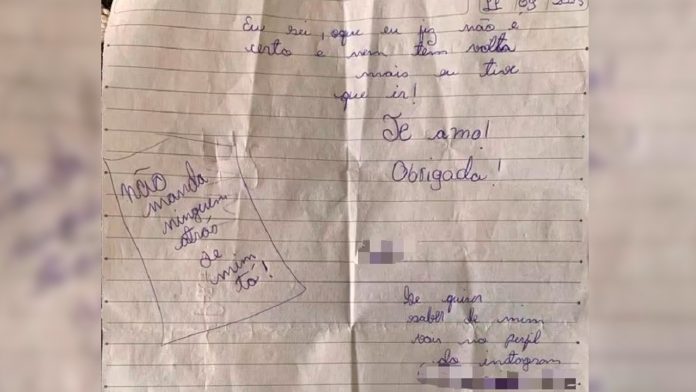 11/09/
Eu sei, oque eu fiz não é
certo e nem tem volta
mais eu tive
que ir!
Te amo!
Obrigada!
não
manda
ninguem
atrás
de
mim
tá!
Se quiser
saber de mim
vai no perfil
do instagram